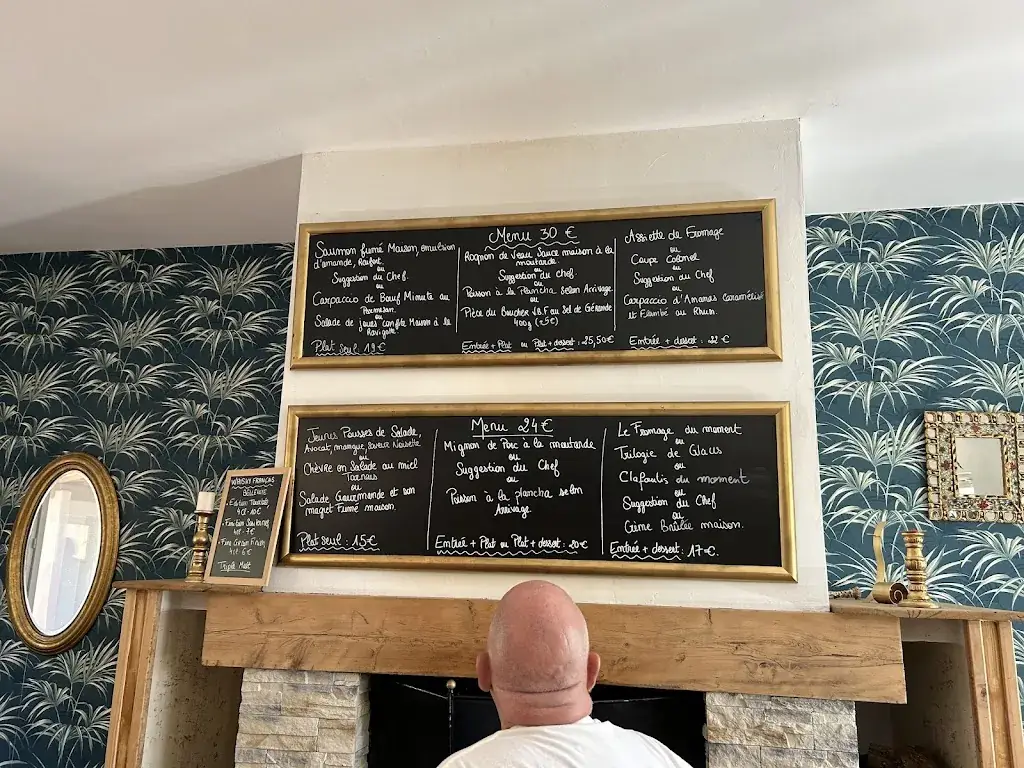 Menu 30 €
Saumon fumé Maison, emulsion
d'amande,
ou
Suggestion du Chef.
ou
Carpaccio de Bœuf Minute au
Parmesan.
ou
Salade de joues confite Maison à la
Ravigote.
Plat seul 19€
Rognon de Veau Sauce maison à la
moutarde.
ou
Suggestion du chef.
ou
Poisson à la Plancha selon Arrivage.
ou
Pièce du Boucher V.B.F au Sel de Guérande
400g (+5€)
Entrée + Plat ou Plat + dessert : 25,50€
Assiette de Fromage
ou
Coupe Colonel
ou
Suggestion du Chef
ou
Carpaccio d'Ananas caramélisé
et Flambé au Rhum.
Entrée + dessert : 22 €
Menu 24€
Jeunes Pousses de Salade,
Avocat, mangue, Saveur Noisette
ou
Chèvre en Salade au miel
ou
Salade Gourmande et son
magret Fumé maison.
Plat seul : 15€
Mignon de Porc à la moutarde
ou
Suggestion du Chef
ou
Poisson à la plancha selon
Arrivage.
Entrée + Plat ou Plat + dessert : 20€
Le Fromage du moment
ou
Trilogie de Glaces
ou
Clafoutis du moment
ou
Suggestion du Chef
ou
Crème Brûlée maison.
Entrée + dessert : 17€.
WHISKY FRANÇAIS
BELLEVUE
4cl
4cl - 7€
4cl 6€
Triple Malt